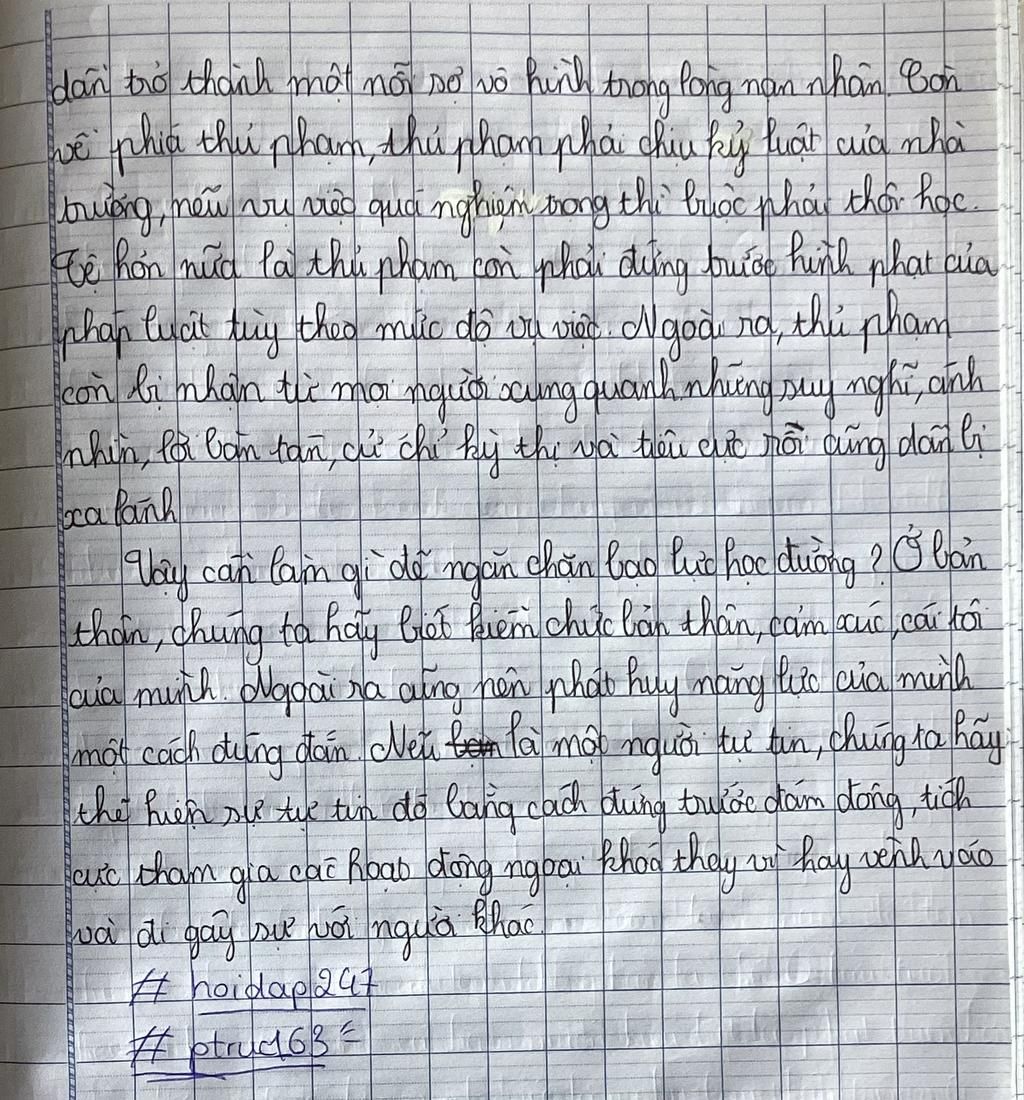 dần trở thành một nỗi sợ vô hình trong lòng nạn nhân. Còn
về phía thủ phạm, thủ phạm phải chịu kỷ luật của nhà
trường, nếu vụ việc quá nghiêm trọng thì buộc phải thôi học.
Tệ hơn nữa là thủ phạm còn phải đứng trước hình phạt của
pháp luật tùy theo mức độ vụ việc. Ngoài ra, thủ phạm
còn bị nhận từ mọi người xung quanh những suy nghĩ, ánh
nhìn, lời bàn tán, cử chỉ kỳ thị và tiêu cực rồi cũng dần bị
xa lánh
Vậy cần làm gì để ngăn chặn bạo lực học đường? Ở bản
thân, chúng ta hãy biết kiềm chức bản thân, cảm xúc, cái tôi
của mình. Ngoài ra cũng nên phát huy năng lực của mình
một cách đúng đắn. Nếu là một người tự tin, chúng ta hãy
thể hiện sự tự tin đó bằng cách đứng trước đám đông, tích
cực tham gia các hoạt động ngoại khoá thay vì hay vênh váo
và đi gây sự với người khác.
# hoidap247
# ptruc163